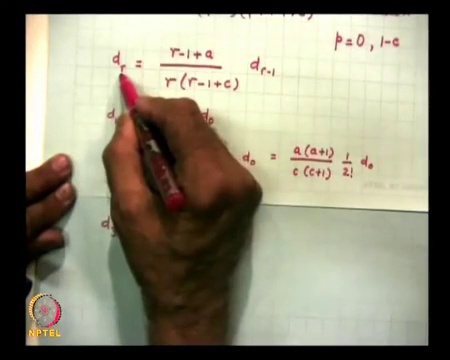 p=0, 1-c
d_r = (r-1+a) / (r(r-1+c)) d_{r-1}
d d₀
d₀ = (a(a+1)) / (c(c+1)) 1/2! d₀
d
NPTEL